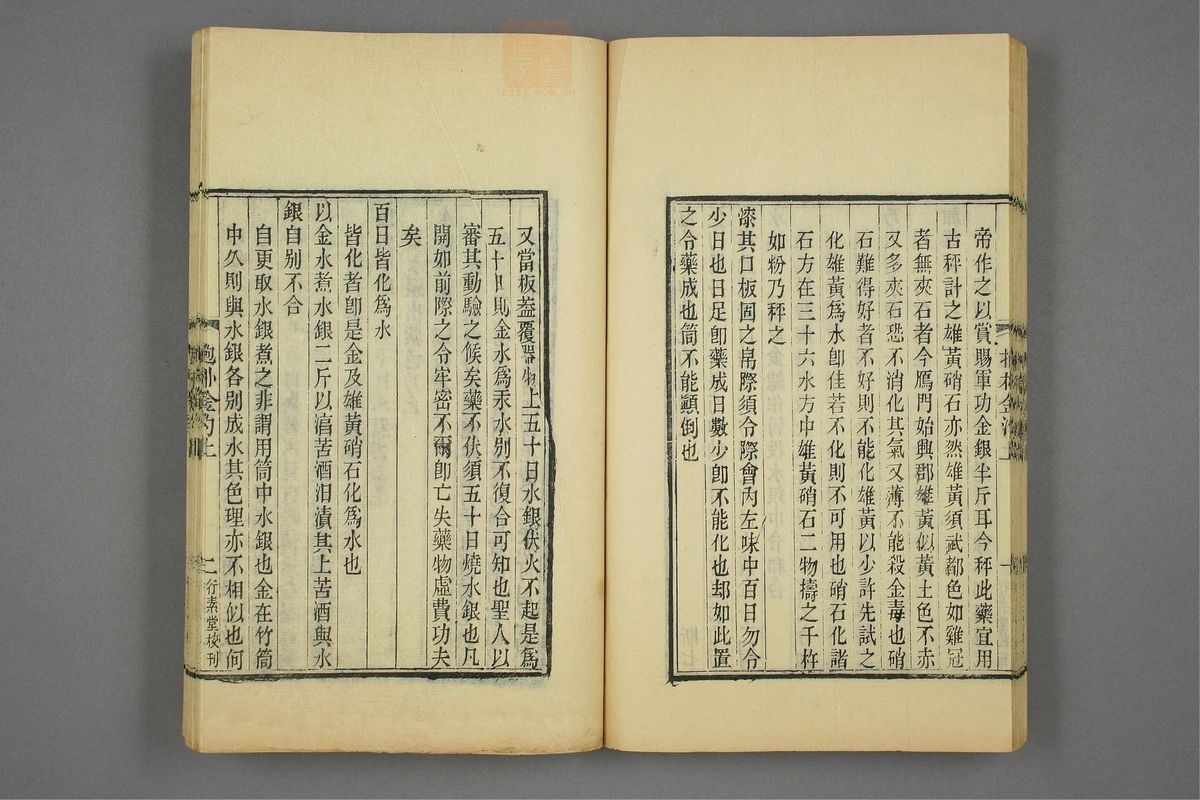 帝作之以賞賜軍功金銀半斤耳今秤此藥宜用
古秤計之雄黃硝石亦然雄黃須武都色如雞冠
者無夾石者今鴈門始興郡雄黃似黃土色不赤
又多夾石恐不消化其氣又薄不能殺金毒也硝
石難得好者不好則不能化雄黃以少許先試之
化雄黃爲水卽佳若不化則不可用也硝石化諸
石方在三十六水方中雄黃硝石二物擣之千杵
如粉乃秤之
漆其口板固之帛際須令際會內左味中百日勿令
少日也日足卽藥成日數少卽不能化也却如此置
之令藥成也筒不能顚倒也
又當板盖覆器物上五十日水銀伏火不起是爲
五十日則金水爲汞水別不復合可知也聖人以
審其動驗之候矣藥不伏須五十日燒水銀也凡
開如前際之令牢密不爾卽亡失藥物虛費功夫
矣
百日皆化爲水
皆化者卽是金及雄黃硝石化爲水也
以金水煮水銀二斤以淯苦酒汨漬其上苦酒與水
銀自別不合
自更取水銀煮之非謂用筒中水銀也金在竹筒
中久則與水銀各別成水其色理亦不相似也何
抱朴金汋上
二
行素堂校刊